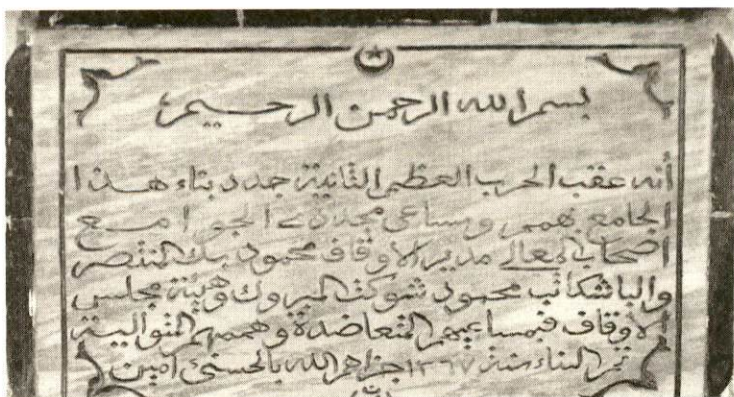 بسم الله الرحمن الرحيم
أنه عقب الحرب العظمى الثانية جدد بناء هذا
الجامع بهمم ومساعي مجددي الجوامع
اصحاب المعالي مدير الاوقاف محمود بك المنتصر
والباشكاتب محمود شوكت المبروك وهيئة مجلس
الأوقاف فبمساعيهم المتعاضدة وهممهم المتوالية
تم البناء سنة ١٣٦٧ جزاهم الله بالحسنى امين